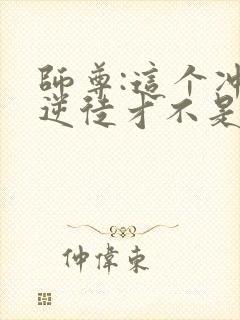 師尊:這个冲
逆徒才不是
仲偉東